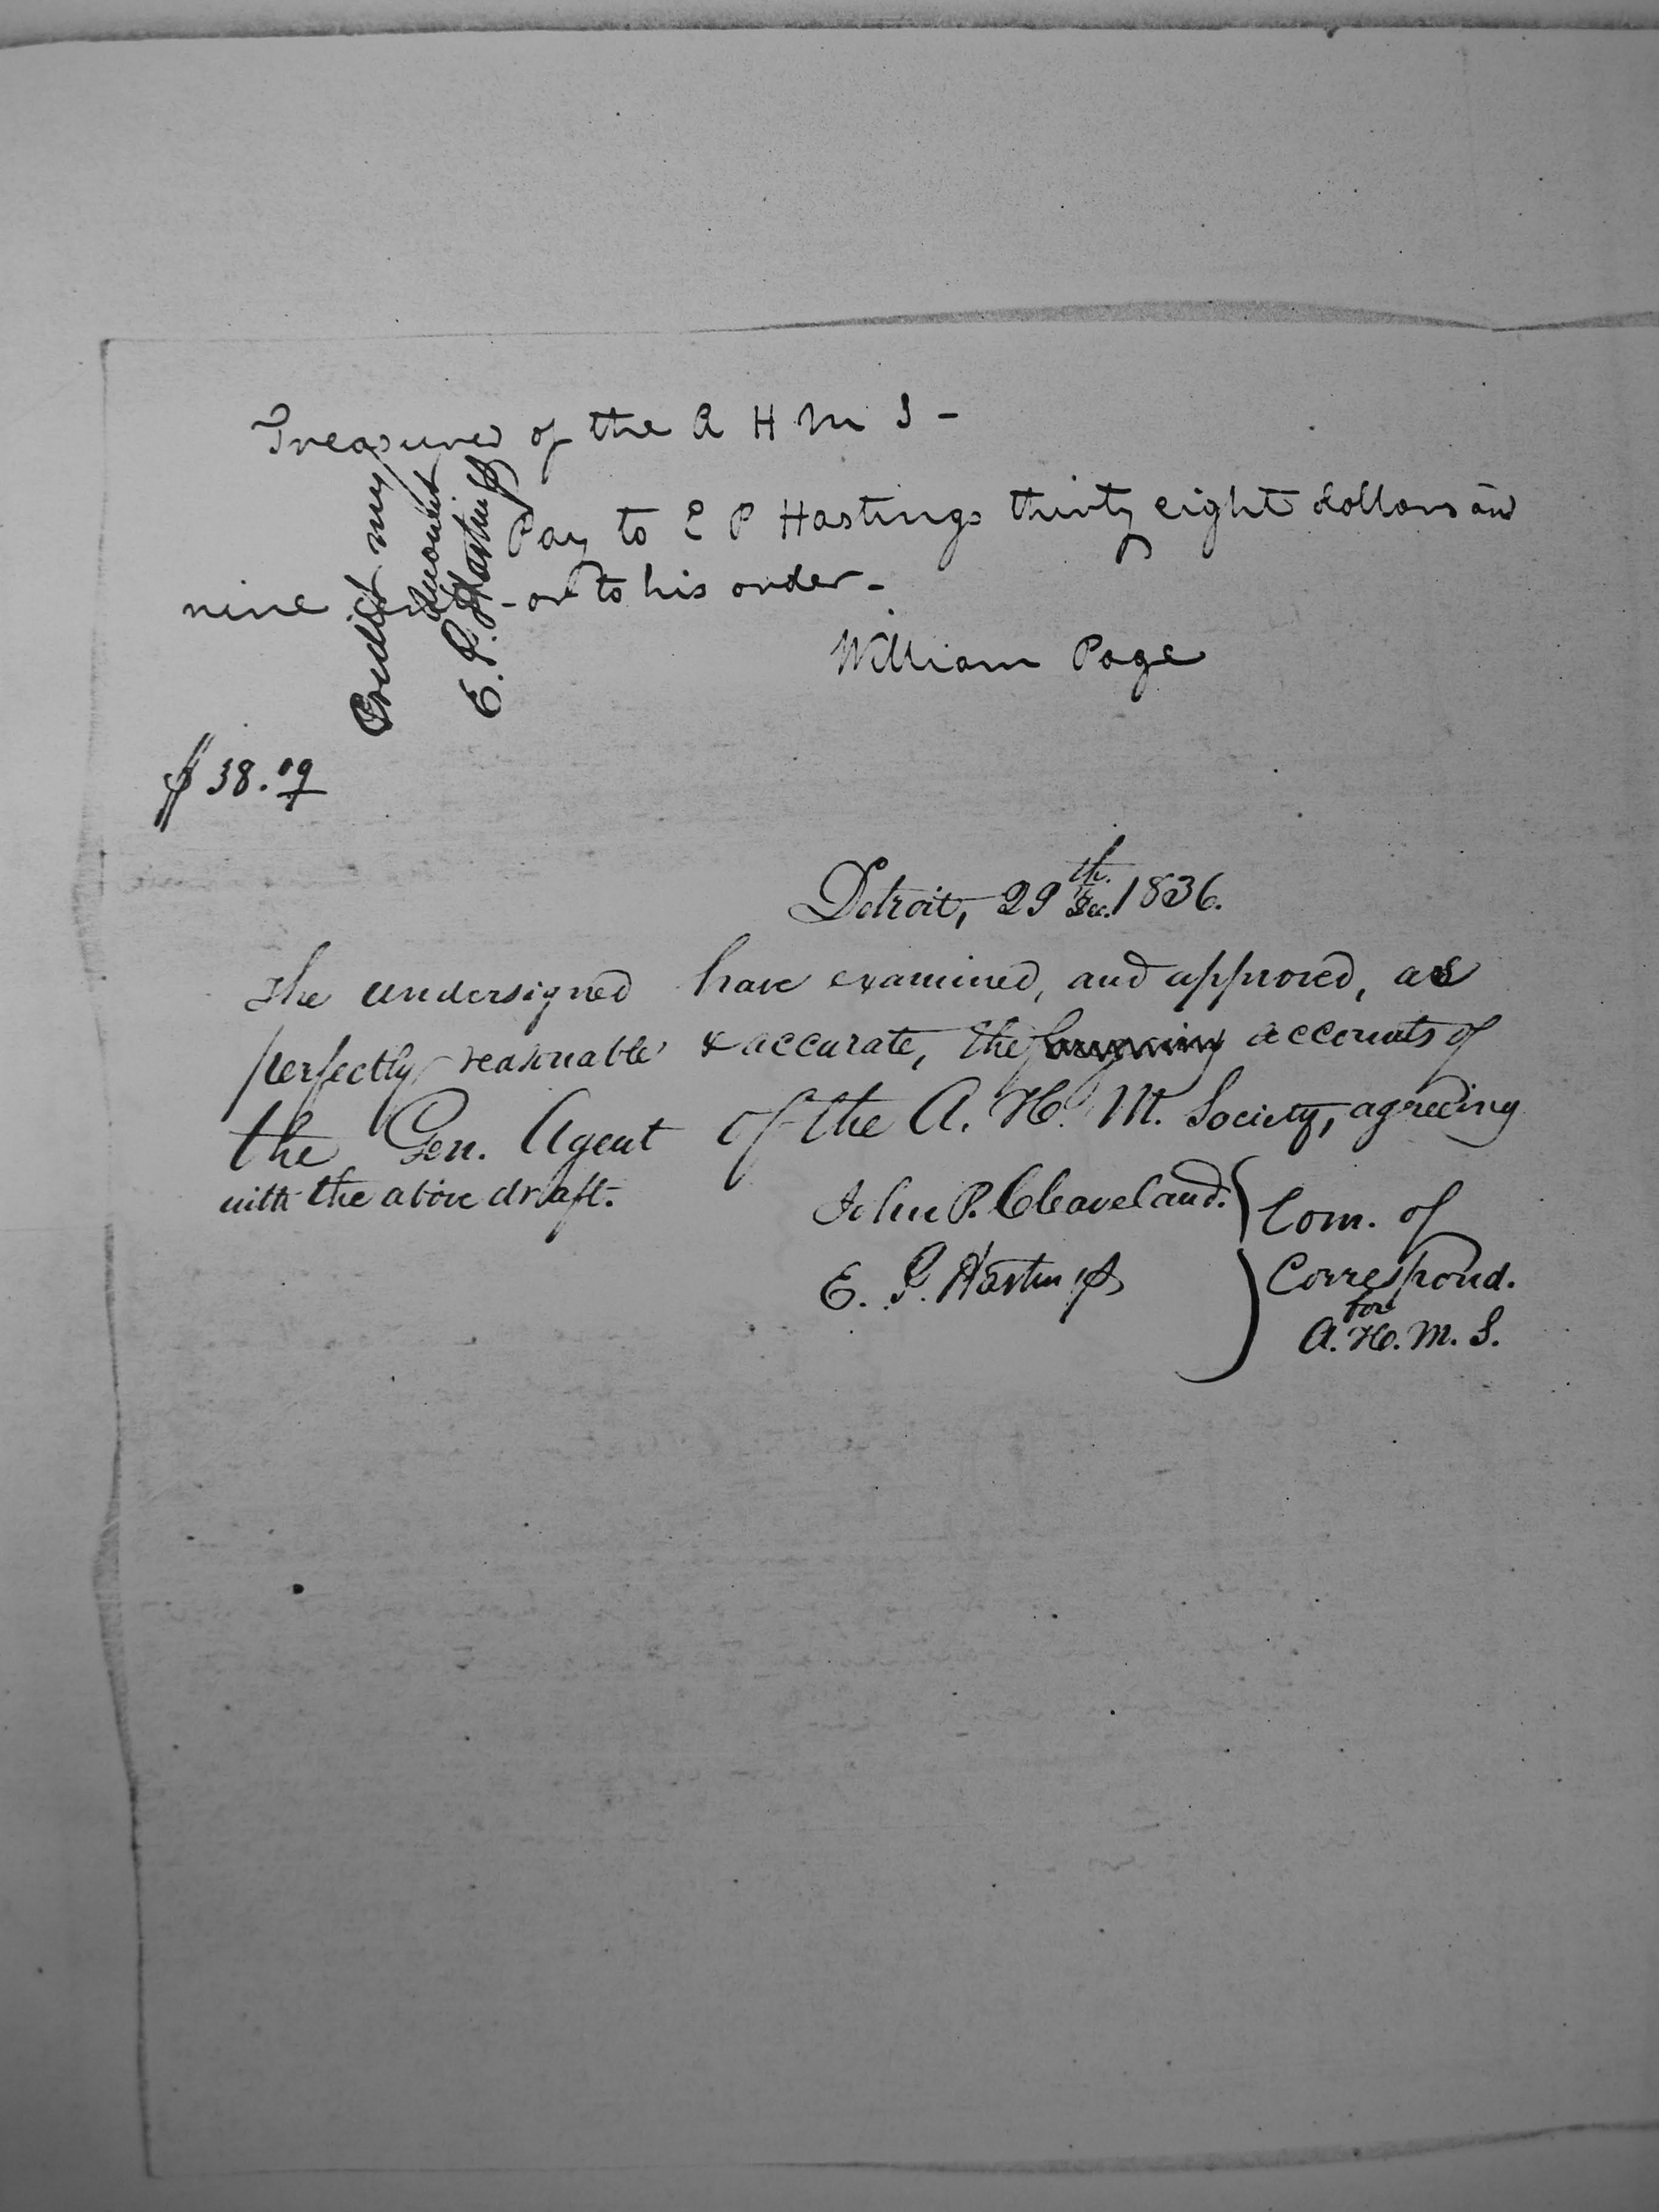 Treasurer of the A H M S -
Pay to E P Hastings thirty eight dollars and
nine - or to his order -
William Page
Credit my
account
E. P. Hastings
$ 38.09
Detroit, 29th Dec. 1836.
The undersigned have examined, and approved, as
perfectly reasonable & accurate, the accounts of
the Gen. Agent of the A. H. M. Society, agreeing
with the above draft.
John P. Cleaveland.
E. P. Hastings
Com. of
Correspond.
for
A. H. M. S.